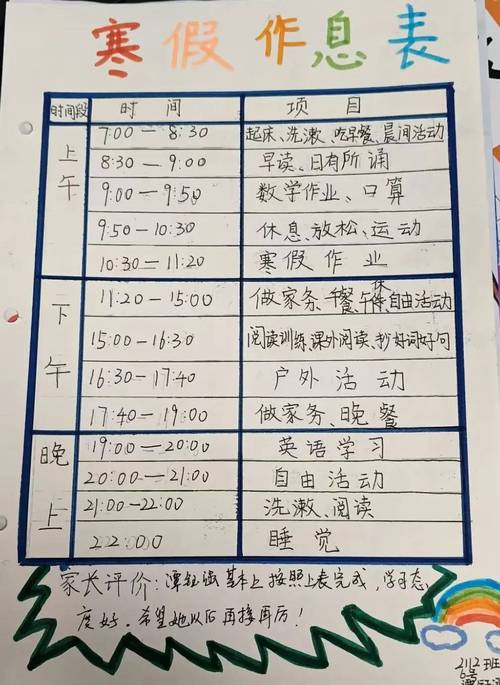 寒假作息表
时间段 时间 项目
上午
7:00—8:30 起床、洗漱、吃早餐、晨间活动
8:30—9:00 早读、日有所诵
9:00—9:50 数学作业、口算
9:50—10:30 休息、放松、运动
10:30—11:20 寒假作业
下午
11:20—15:00 做家务、午餐、午休、自由活动
15:00—16:30 阅读训练、课外阅读、抄好词好句
16:30—17:40 户外活动
17:40—19:00 做家务、晚餐
晚上
19:00—20:00 英语学习
20:00—21:00 自由活动
21:00—22:00 洗漱、阅读
22:00 睡觉
家长评价:基本上按照上表完成,学习态
度好。希望她以后再接再厉!
2112班
6号